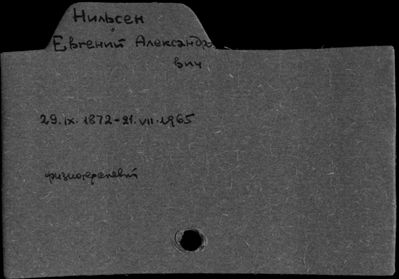 Нильсен
Евгений Александро-
вич
29.IX.1872-21.VII.1965
физиотерапевт